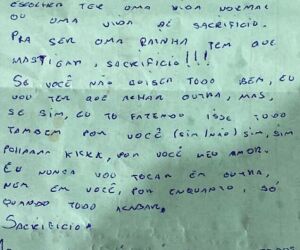 ESCOLHER TER UMA VIDA NORMAL
OU UMA VIDA DE SACRIFICIO.
PRA SER UMA RAINHA TEM QUE
MASTIGAR, SACRIFICIO!!!
SE VOCÊ NÃO QUISER TUDO BEM, EU
VOU TER QUE ACHAR OUTRA, MAS,
SE SIM, EU TO FAZENDO ISSO TUDO
TAMBEM POR VOCÊ (SIM/NÃO) SIM, SIM
KICKK, POR VOCÊ MEU AMOR.
EU NUNCA VOU TOCAR EM OUTRA,
NEM EM VOCÊ, POR ENQUANTO, SÓ
QUANDO TUDO ACABAR.
SACRIFICIO